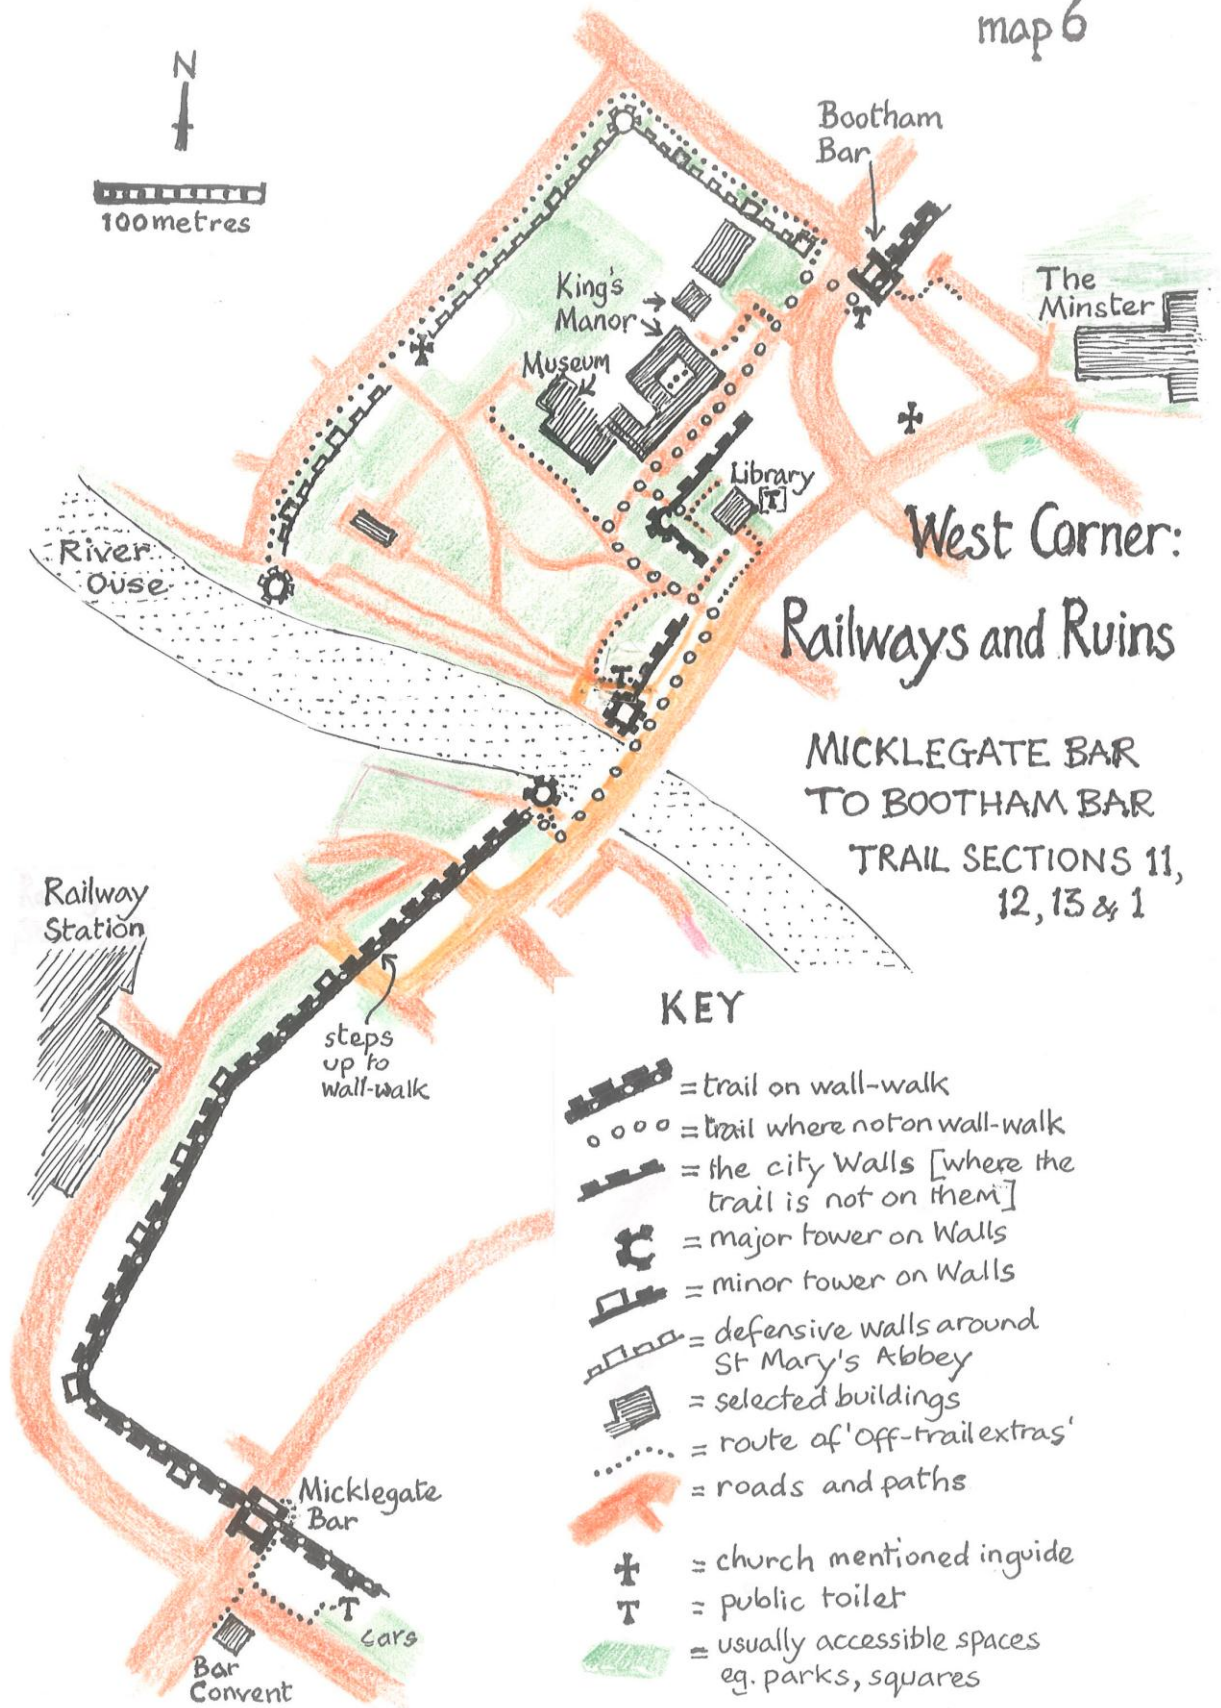 map 6
N
100 metres
Bootham
Bar
The
Minster
King's
Manor
Museum
Library
[T]
T
River
Ouse
West Corner:
Railways and Ruins
T
MICKLEGATE BAR
TO BOOTHAM BAR
TRAIL SECTIONS 11,
12, 13 & 1
Railway
Station
steps
up to
wall-walk
Micklegate
Bar
T
cars
Bar
Convent
KEY
= trail on wall-walk
= trail where not on wall-walk
= the city Walls [where the
trail is not on them]
= major tower on Walls
= minor tower on Walls
= defensive walls around
St Mary's Abbey
= selected buildings
= route of 'off-trail extras'
= roads and paths
= church mentioned in guide
T = public toilet
= usually accessible spaces
eg. parks, squares